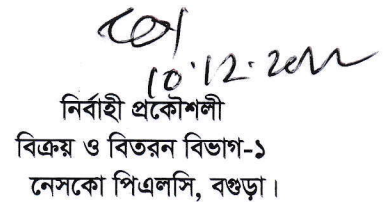 10.12.2022
নির্বাহী প্রকৌশলী
বিক্রয় ও বিতরন বিভাগ-১
নেসকো পিএলসি, বগুড়া।